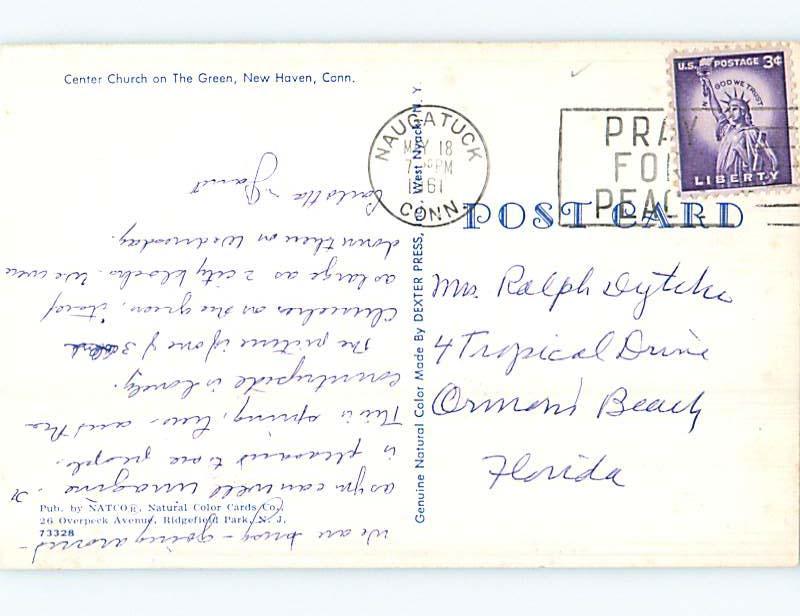 Center Church on The Green, New Haven, Conn.
NAUGATUCK
MAY 18
PM
1961
CONN.
PRAY
FOR
PEACE
U.S. POSTAGE 3¢
IN GOD WE TRUST
LIBERTY
POST CARD
Genuine Natural Color Made By DEXTER PRESS, West Nyack, N. Y.
Mrs. Ralph Dytche
4 Tropical Drive
Ormond Beach
Florida
We are busy - going around -
as you can well imagine. It
is pleasant to see people.
This is spring, here - and the
countryside is lovely.
The picture is of one of 3
Churches on the green, itself
as large as 2 city blocks. We were
down there on Wednesday.
Carlotta & Janet
Pub. by NATCO®, Natural Color Cards Co.
26 Overpeck Avenue, Ridgefield Park, N. J.
73328